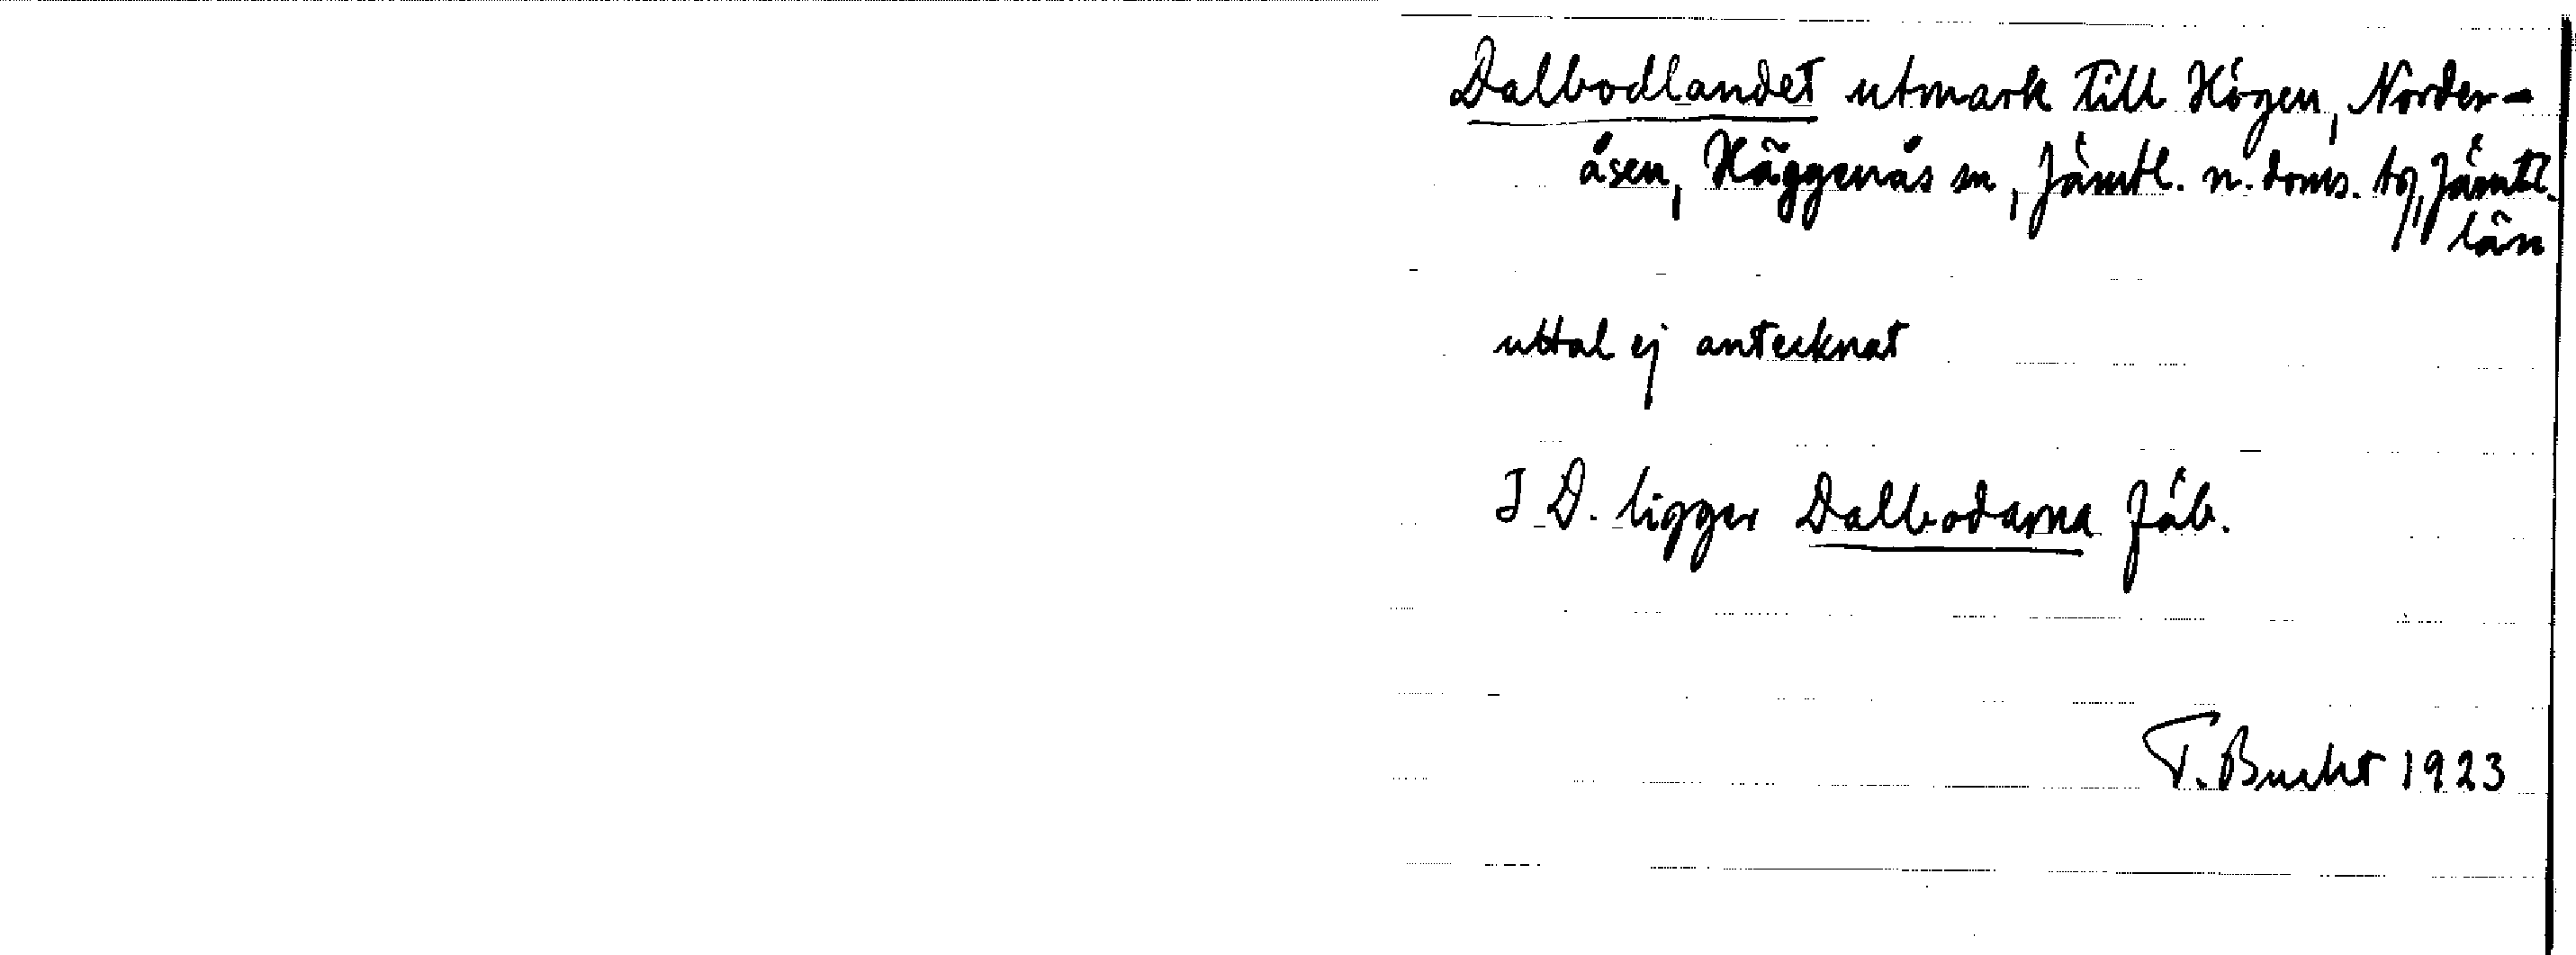 Dalbodlandet utmark till Högen, Norder-
åsen, Häggenås sn, Jämtl. n. doms. tg, Jämtl.
län
uttal ej antecknat
I D. ligger Dalbodarna fäb.
T. Bucht 1923